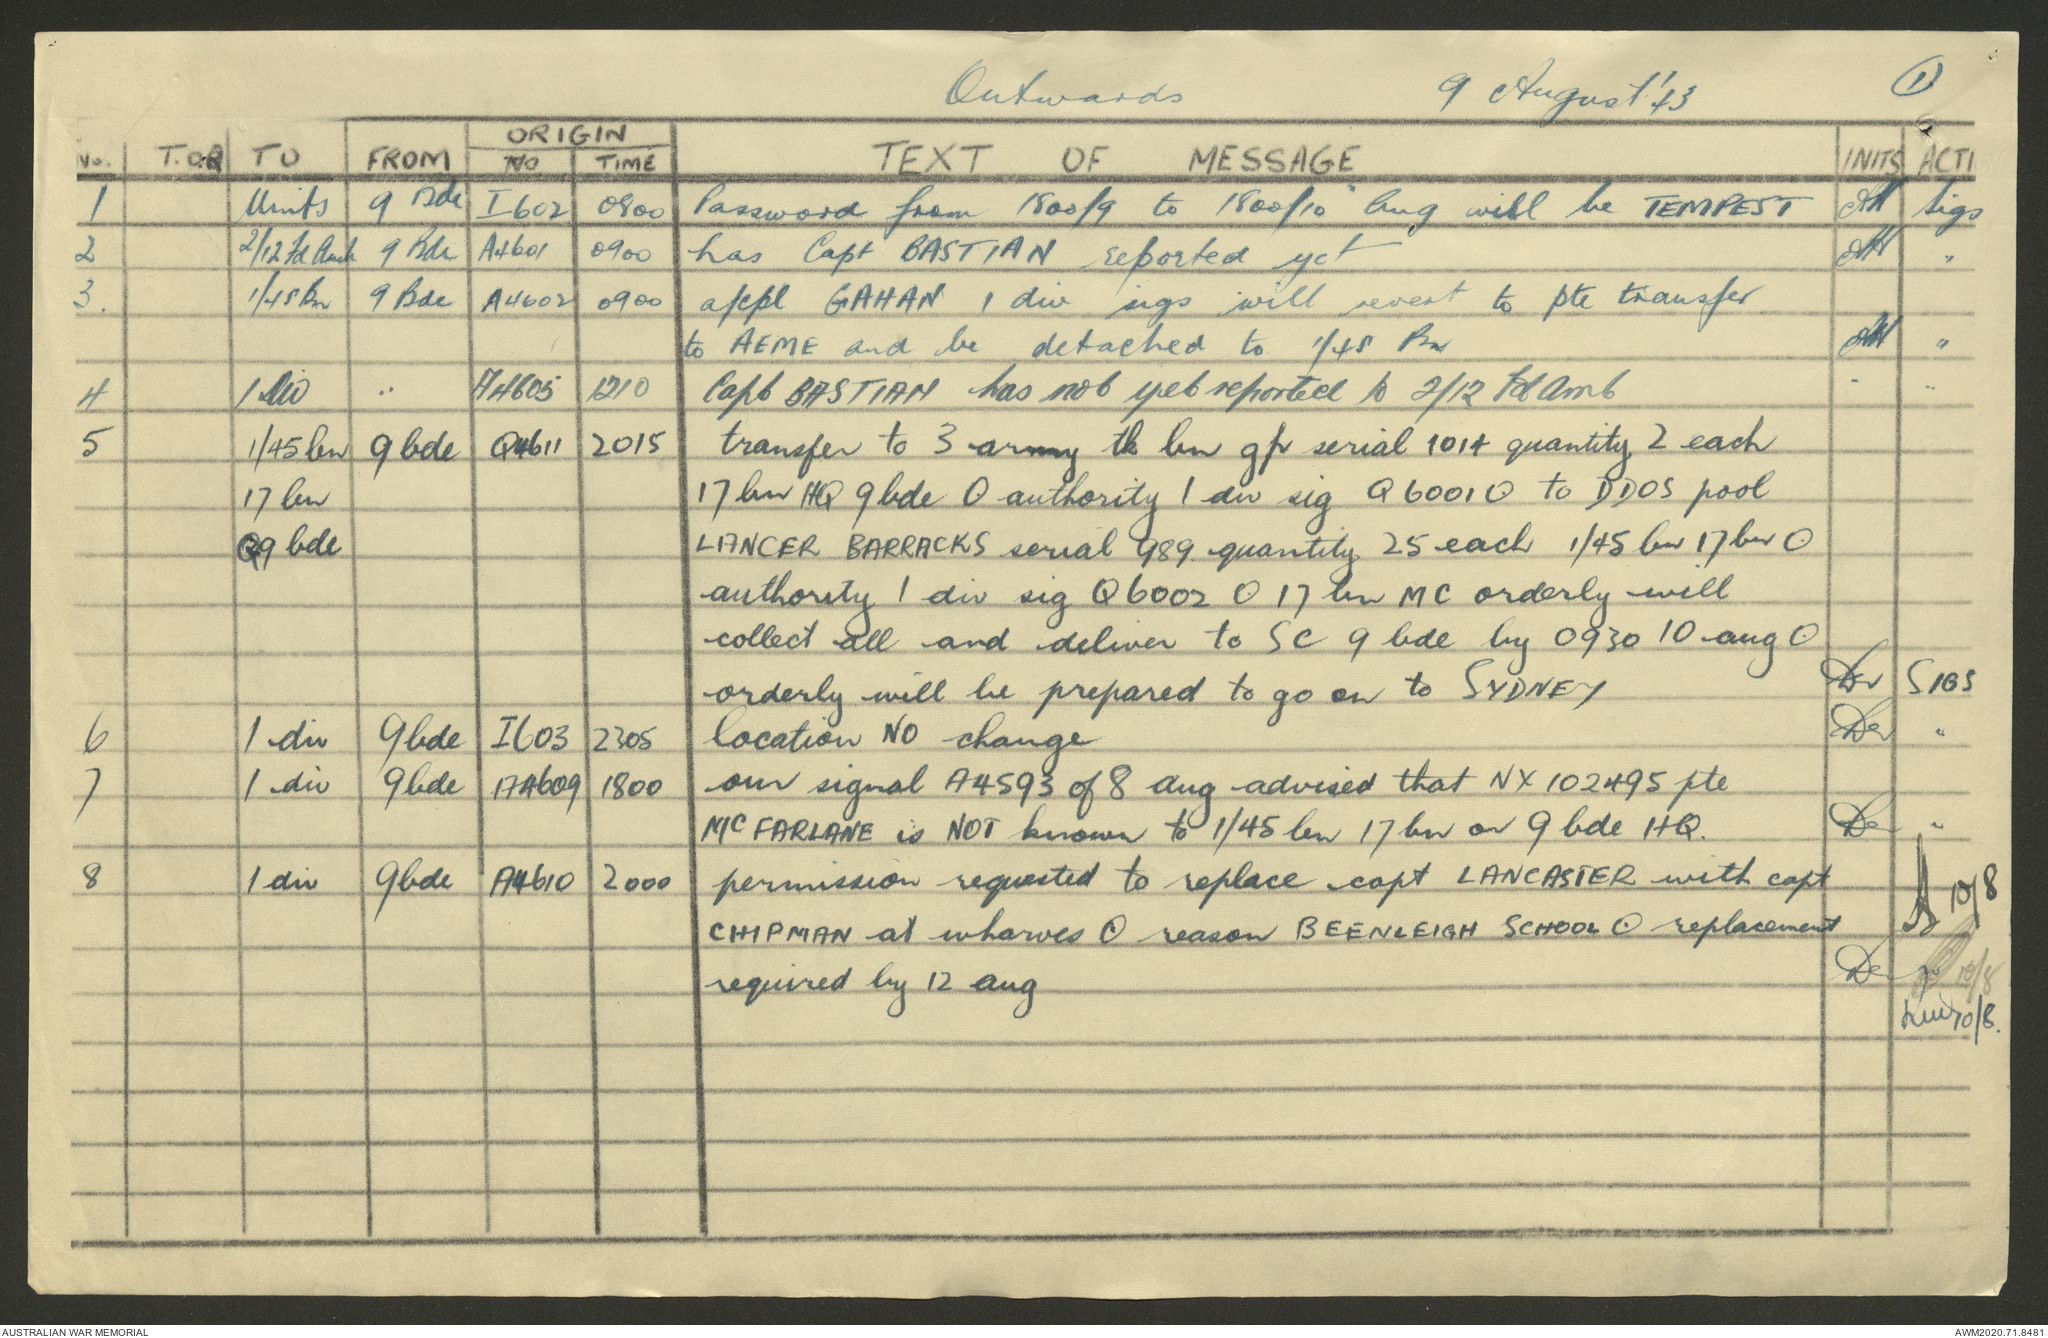 Outwards 9 August '43 1
ORIGIN
No. T.OR TO FROM NO TIME TEXT OF MESSAGE INITS ACTI
1 Units 9 Bde I602 0900 Password from 1800/9 to 1800/10 Aug will be TEMPEST Sigs
2 2/12 Fd Amb 9 Bde A4601 0900 has Capt BASTIAN reported yet "
3. 1/45 Bn 9 Bde A4602 0900 appl GAHAN 1 div sigs will revert to pte transfer
to AEME and be detached to 1/45 Bn "
4 1 Div " A4605 1210 Capt BASTIAN has not yet reported to 2/12 Fd Amb " "
5 1/45 bn 9 bde Q4611 2015 transfer to 3 army tk bn gp serial 1014 quantity 2 each
17 bn 17 bn HQ 9 bde O authority 1 div sig Q6001 O to DDOS pool
Q9 bde LANCER BARRACKS serial 989 quantity 25 each 1/45 bn 17 bn O
authority 1 div sig Q6002 O 17 bn MC orderly will
collect all and deliver to SC 9 bde by 0930 10 aug O
orderly will be prepared to go on to SYDNEY SIGS
6 1 div 9 bde I603 2305 location NO change "
7 1 div 9 bde A4609 1800 our signal A4593 of 8 aug advised that NX 102495 pte
McFARLANE is NOT known to 1/45 bn 17 bn or 9 bde HQ. "
8 1 div 9 bde A4610 2000 permission requested to replace capt LANCASTER with capt 10/8
CHIPMAN at wharves O reason BEENLEIGH SCHOOL O replacement
required by 12 aug 10/8
10/8.
AUSTRALIAN WAR MEMORIAL AWM2020.71.8481